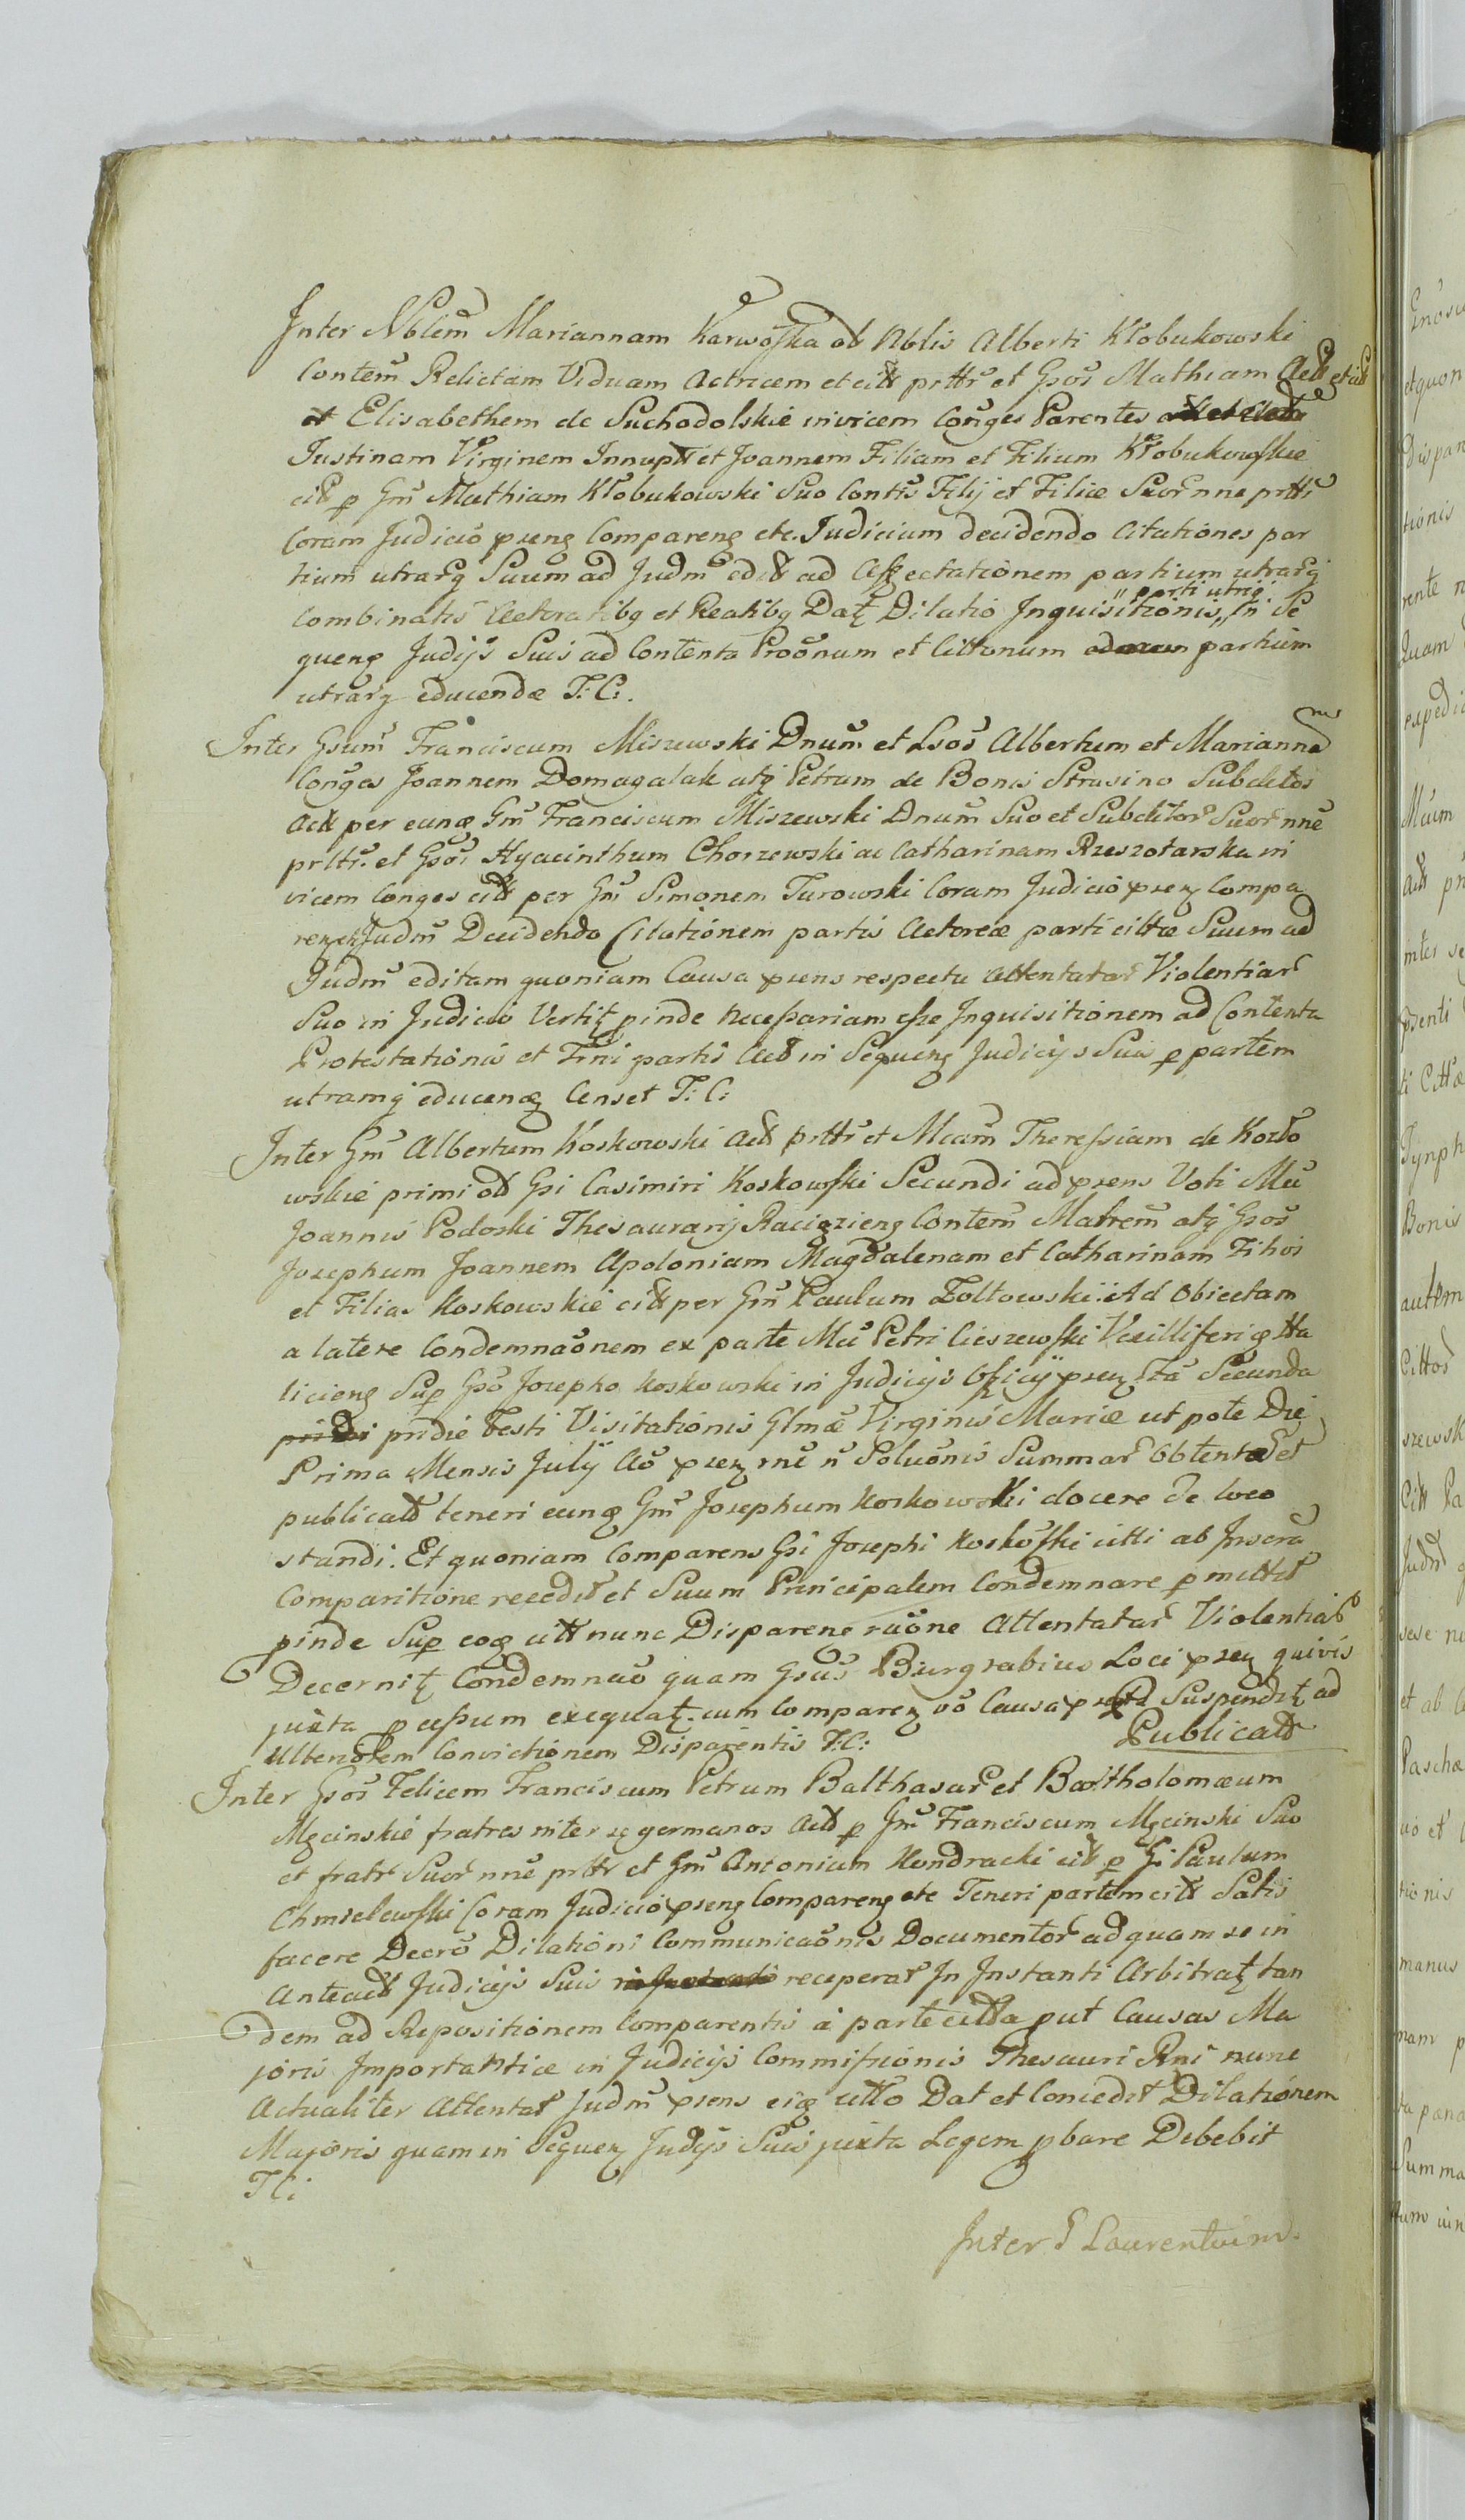 Inter Nblem Mariannam Karwoska olt Nblis Alberti Kłobukowski
Contem Relictam Viduam Actricem et citt prttr et Gsos Mathiam Act et citt
et Elisabethem de Suchodolskie invicem Conges Parentes
Justinam Virginem Innupt et Joannem Filiam et Filium Kłobukowskie
citt p Gm Mathiam Kłobukowski Suo Contis Filij et Filiæ Suor nne prtti
Coram Judicio prns Comparens etc. Judicium decidendo Citationes par
tium utrarq Suum ad Judm edit ad Affectationem partium utrarq
Combinatis Actoratibq et Reatibq Datz Dilatio Inquisitionis, " parti utriq " In Se
quens Judijs Suis ad Contenta Proonum et Cittonum partium
utrarq educendæ T: C:
Inter Gsum Franciscum Miszewski Dnum et Lsos Albertum et Mariannam
Conges Joannem Domagalak atq Petrum de Bonis Strusino Subditos
Act per eunq Gm Franciscum Miszewski Dnum Suo et Subditor Suor nne
prltr. et Gsos Hyacinthum Chorzewski ac Catharinam Rzeszotarska in
vicem Conges citt per Gm Simonem Turowski Coram Judicio prns Compa
rens etc Judm Decidendo Citationem partis Actoreæ parti cittæ Suum ad
Judm editam quoniam Causa prns respectu Attentatar Violentiar
Suo in Judicio Vertitz pinde necessariam esse Inquisitionem ad Contenta
Protestationis et Trni partis Act in Sequens Judicijs Suis p partem
utramq educenq Censet T: C:
Inter Gm Albertum Koskowski Act prttr et Mcam Theressiam de Kozło
wskie primi olt Gsi Casimiri Koskowski Secundi ad prns Voti Mci
Joannis Podoski Thesaurarij Raciązens Contem Matrem atq Gsos
Josephum Joannem Apoloniam Magdalenam et Catharinam Filios
et Filias Koskowskie citt per Gm Paulum Żółtowski: Ad Obiectam
a latere Condemnaonem ex parte Mci Petri Cieszewski Vexilliferi
liciens Sup Gso Josepho Koskowski in Judicijs Officij prns Secunda
pridie Festi Visitationis Glmæ Virginis Mariæ ut pote Die
Prima Mensis Julij Ao prns rne n Soluonis Summar Obtentæ et
publicatt teneri eunq Gm Josephum Koskowski docere de loco
standi. Et quoniam Comparens Gsi Josephi Koskoski citti ab
Comparitione recedit et Suum Principalem Condemnare pmittit
pinde Sup eoq citt nunc Disparene raone Attentatar Violentiar
Decernitz Condemnao quam Gsus Burgrabius Loci prns quivis
juxta pcessum exequatz. cum Comparen vo Causa Suspenditz ad
Ulteriorem Convictionem Disparentis T:C: Publicatt
Inter Gsos Felicem Franciscum Petrum Balthasar et Bartholomæum
Męcinskie fratres inter se germanos Act p Gm Franciscum Męcinski Suo
et fratr Suor nne prttr et Gm Antonium Kondracki citt p G Paulum
Chmielewski Coram Judicio prns Comparens etc Teneri partem citt Satis
facere Decro Dilationi Communicaonis Documentor ad quam se in
Anteact Judicijs Suis receperat In Instanti Arbitratz tan
dem ad Repositionem Comparentis à parte citta put Causas Ma
joris Importantiæ in Judicijs Commissionis Thesauri Rni nunc
Actualiter Attentat Judm prns eiq citto Dat et Concedit Dilationem
Majoris quam in Sequen Judijs Suis juxta Legem pbare Debebit
T C:
Inter G Laurentium